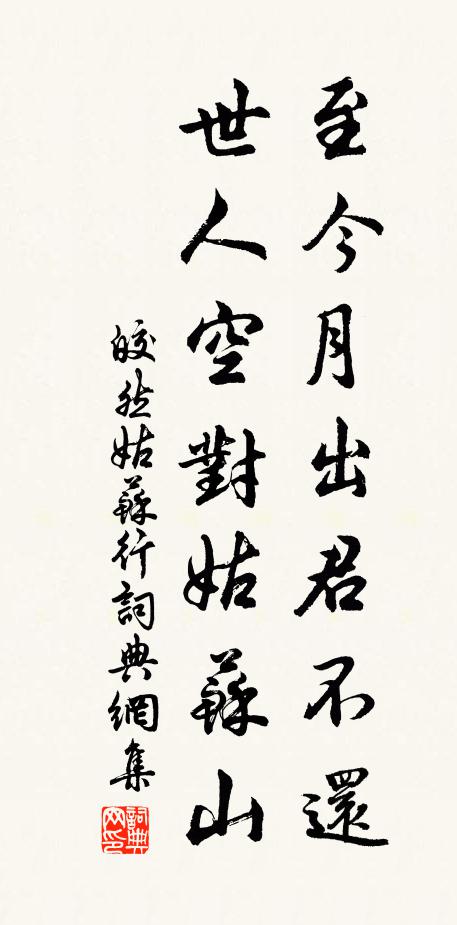 至今月出君不還
世人空對姑蘇山
皎然姑蘇行詞典網集
詞典网印